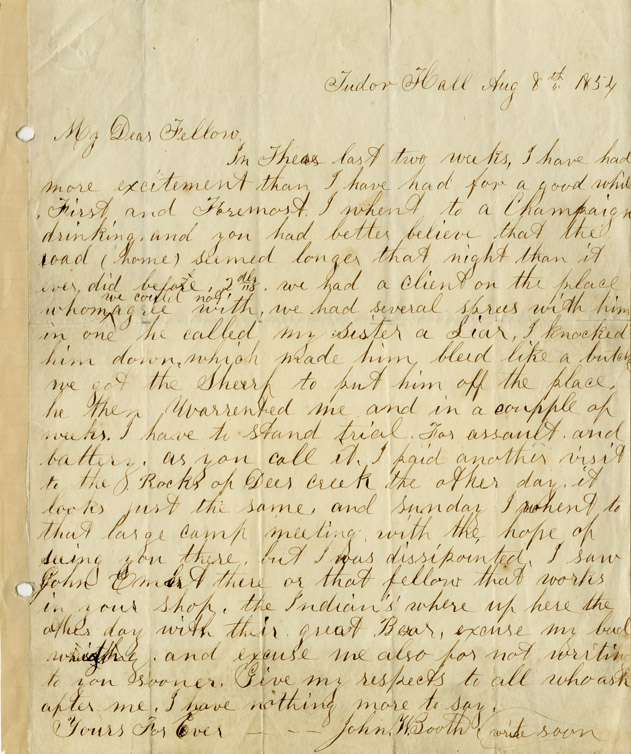 Tudor Hall Aug 8th 1854
My Dear Fellow,
In Thees last two weeks, I have had
more excitement than I have had for a good while
, First, and Foremost I whent to a Champaign
drinking, and you had better believe that the
road (home) seemed longer that night than it
ever did before, 2dly we had a client on the place
we could not
whom agree with, we had several sprees with him
in one he called my Sister a Liar, I knocked
him down, which made him bleed like a butch
we got the Sherrf to put him off the place,
he then Warrented me and in a coupple of
weeks. I have to stand trial. For assault. and
battery. as you call it. I paid another visit
to the Rocks of Deer creek the other day. it
looks just the same, and sunday I whent to
that large camp meeting with the hope of
seing you there, but I was dissipointed, I saw
John there or that fellow that works
in your shop. the Indian's where up here the
other day with their great Bear, excuse my bad
and excuse me also for not writin
to you sooner. Give my respects to all who ask
after me. I have nothing more to say.
Yours For Ever — - - John. W. Booth (write soon